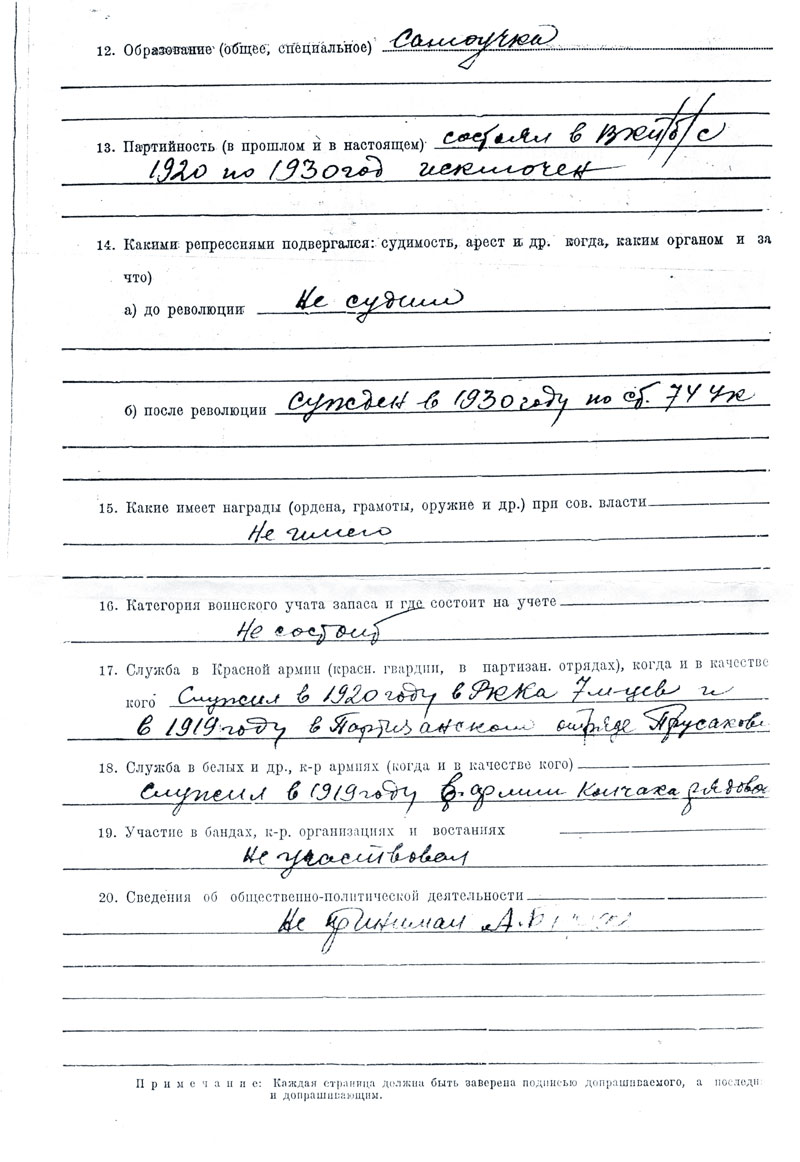 12. Образование (общее, специальное) Самоучка
13. Партийность (в прошлом и в настоящем) состоял в ВКП/б/ с
1920 по 1930 год исключен
14. Какими репрессиями подвергался: судимость, арест и др. когда, каким органом и за
что)
а) до революции Не судим
б) после революции Сужден в 1930 году по ст. 74 УК
15. Какие имеет награды (ордена, грамоты, оружие и др.) при сов. власти
Не имею
16. Категория воинского учата запаса и где состоит на учете
Не состоит
17. Служба в Красной армии (красн. гвардии, в партизан. отрядах), когда и в качестве
кого Служил в 1920 году в РККА 7 м-цев и
в 1919 году в Партизанском отряде Прусакова
18. Служба в белых и др., к-р армиях (когда и в качестве кого)
Служил в 1919 году в армии Колчака рядовой
19. Участие в бандах, к-р. организациях и востаниях
Не участвовал
20. Сведения об общественно-политической деятельности
Не принимал
Примечание: Каждая страница должна быть заверена подписью допрашиваемого, а последн
и допрашивающим.